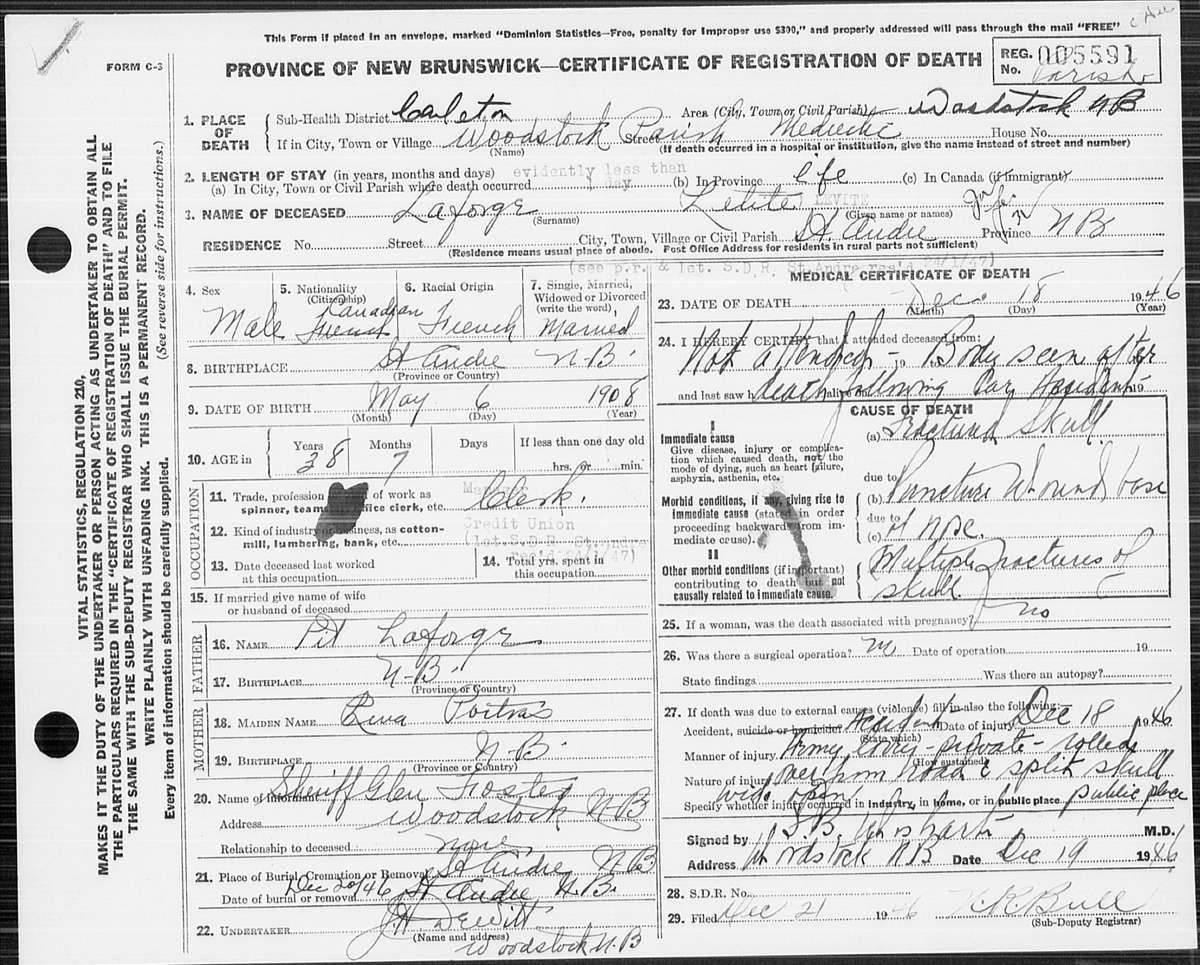 This Form if placed in an envelope, marked "Dominion Statistics—Free, penalty for improper use $300," and properly addressed will pass through the mail "FREE"
FORM C-3
PROVINCE OF NEW BRUNSWICK—CERTIFICATE OF REGISTRATION OF DEATH
REG. No. 005591
Parish
VITAL STATISTICS, REGULATION 210,
MAKES IT THE DUTY OF THE UNDERTAKER OR PERSON ACTING AS UNDERTAKER TO OBTAIN ALL
THE PARTICULARS REQUIRED IN THE "CERTIFICATE OF REGISTRATION OF DEATH" AND TO FILE
THE SAME WITH THE SUB-DEPUTY REGISTRAR WHO SHALL ISSUE THE BURIAL PERMIT.
WRITE PLAINLY WITH UNFADING INK. THIS IS A PERMANENT RECORD.
Every item of information should be carefully supplied. (See reverse side for instructions.)
1. PLACE OF DEATH
Sub-Health District Carleton Area (City, Town or Civil Parish) Woodstock NB
If in City, Town or Village Woodstock Parish Street Meductic House No.
(Name) (If death occurred in a hospital or institution, give the name instead of street and number)
2. LENGTH OF STAY (in years, months and days) evidently less than
(a) In City, Town or Civil Parish where death occurred 1 day (b) In Province life (c) In Canada (if immigrant)
3. NAME OF DECEASED Laforge Levite LEVITE
(Surname) (Given name or names)
RESIDENCE No. Street City, Town, Village or Civil Parish St. Andre Province NB
(Residence means usual place of abode. Post Office Address for residents in rural parts not sufficient)
(see p.r. & let. S.D.R. St.Andre rec'd 24/1/47)
4. Sex Male
5. Nationality (Citizenship) Canadian French
6. Racial Origin French
7. Single, Married, Widowed or Divorced (write the word) Married
8. BIRTHPLACE St Andre N-B.
(Province or Country)
9. DATE OF BIRTH May 6 1908
(Month) (Day) (Year)
10. AGE in Years 38 Months 7 Days If less than one day old hrs. or min.
OCCUPATION
11. Trade, profession of work as spinner, office clerk, etc. Clerk.
12. Kind of industry or business, as cotton-mill, lumbering, bank, etc. Credit Union
(let.S.D.R. St.Andre rec'd 24/1/47)
13. Date deceased last worked at this occupation
14. Total yrs. spent in this occupation
15. If married give name of wife or husband of deceased
FATHER
16. NAME Pit Laforge
17. BIRTHPLACE N-B.
(Province or Country)
MOTHER
18. MAIDEN NAME Poitras
19. BIRTHPLACE N-B.
(Province or Country)
20. Name of informant Sheriff Glen Foster
Address Woodstock NB
Relationship to deceased none
21. Place of Burial, Cremation or Removal St Andre NB
Date of burial or removal Dec 20/46 St Andre N.B.
22. UNDERTAKER J.H. DeWitt
(Name and address) Woodstock N.B
MEDICAL CERTIFICATE OF DEATH
23. DATE OF DEATH Dec. 18 1946
(Month) (Day) (Year)
24. I HEREBY CERTIFY that I attended deceased from:
Not attended - 19 Body seen after
and last saw h death following Car Accident 19
CAUSE OF DEATH
I
Immediate cause
Give disease, injury or complication which caused death, not the mode of dying, such as heart failure, asphyxia, asthenia, etc.
(a) Fractured Skull
due to
Morbid conditions, if any, giving rise to immediate cause (stated in order proceeding backwards from immediate cause).
(b) Puncture Wound base
due to
(c) of nose.
II
Other morbid conditions (if important) contributing to death but not causally related to immediate cause.
Multiple fractures of skull
25. If a woman, was the death associated with pregnancy? no
26. Was there a surgical operation? no Date of operation 19
State findings Was there an autopsy?
27. If death was due to external causes (violence) fill in also the following:
Accident, suicide or homicide? Accident Date of injury Dec 18 1946
(State which)
Manner of injury Army lorry - private - rolled
(How sustained)
Nature of injury over from road & split skull
wide open
Specify whether injury occurred in industry, in home, or in public place public place
Signed by M.D.
Address Woodstock NB Date Dec 19 1946
28. S.D.R. No.
29. Filed Dec 21 1946 Bull
(Sub-Deputy Registrar)